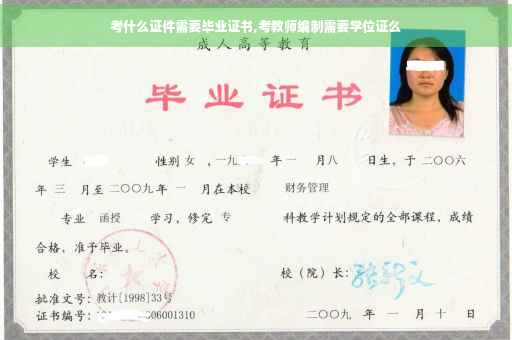 考什么证件需要毕业证书,考教师编制需要学位证么
成人高等教育
毕业证书
学生 性别 女 ,一九 年 一 月八 日生，于二〇〇六
年 三 月至二〇〇九年 一 月在本校 财务管理
专业 函授 学习，修完 专 科教学计划规定的全部课程，成绩
合格，准予毕业。
校 名： 校（院）长：
批准文号：教计[1998]33号
证书编号： 06001310 二〇〇九 年 一 月 十 日